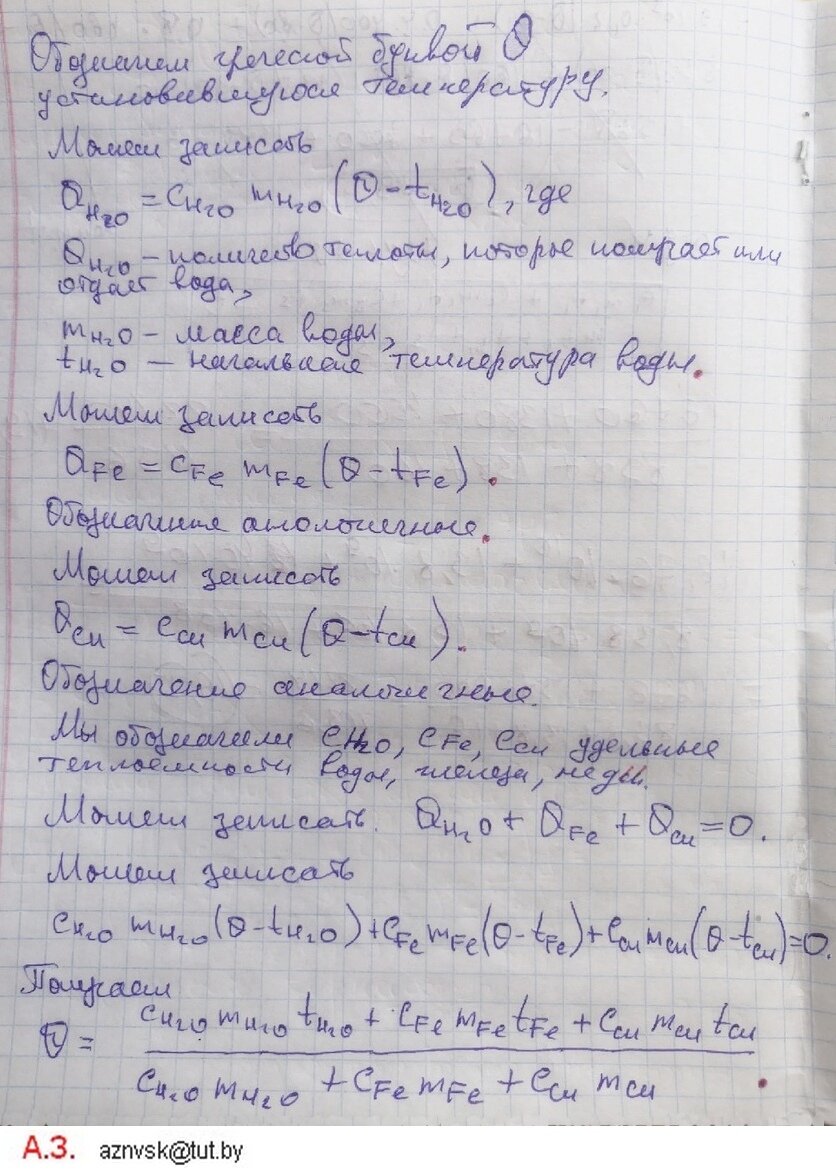 Обозначим греческой буквой Θ
установившуюся температуру.
Можем записать
Q_{H₂O} = c_{H₂O} m_{H₂O} (Θ - t_{H₂O}), где
Q_{H₂O} – количество теплоты, которое получает или
отдаёт вода,
m_{H₂O} – масса воды,
t_{H₂O} – начальная температура воды.
Можем записать
Q_{Fe} = c_{Fe} m_{Fe} (Θ - t_{Fe}).
Обозначения аналогичные.
Можем записать
Q_{Cu} = c_{Cu} m_{Cu} (Θ - t_{Cu}).
Обозначение аналогичные.
Мы обозначили c_{H₂O}, c_{Fe}, c_{Cu} удельные
теплоёмкости воды, железа, меди.
Можем записать. Q_{H₂O} + Q_{Fe} + Q_{Cu} = 0.
Можем записать
c_{H₂O} m_{H₂O} (Θ - t_{H₂O}) + c_{Fe} m_{Fe} (Θ - t_{Fe}) + c_{Cu} m_{Cu} (Θ - t_{Cu}) = 0.
Получаем
c_{H₂O} m_{H₂O} t_{H₂O} + c_{Fe} m_{Fe} t_{Fe} + c_{Cu} m_{Cu} t_{Cu}
Θ =
c_{H₂O} m_{H₂O} + c_{Fe} m_{Fe} + c_{Cu} m_{Cu} .
А.З. aznvsk@tut.by